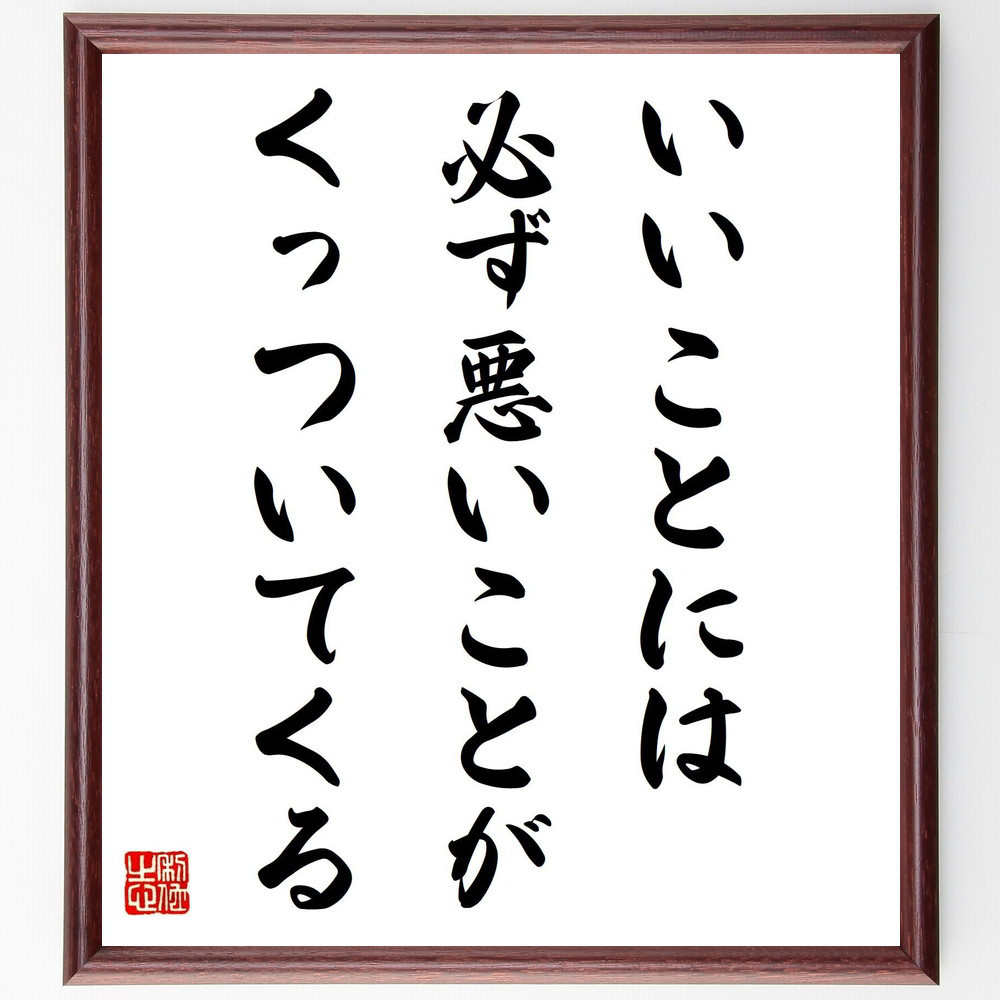 いいことには
必ず悪いことが
くっついてくる